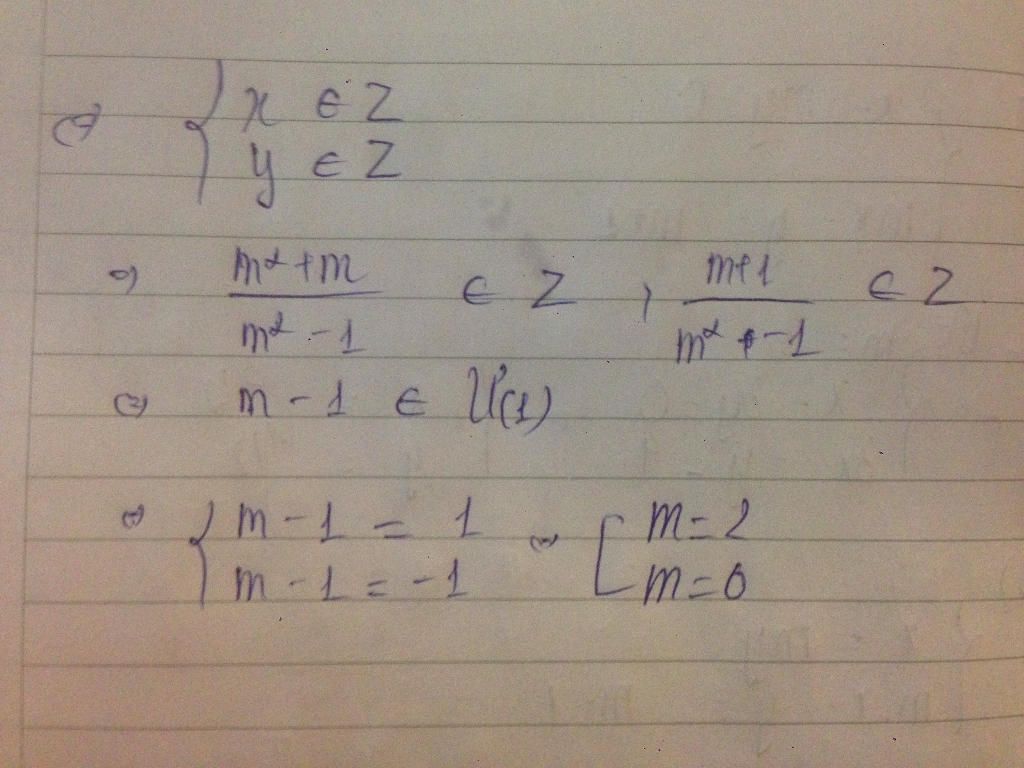 ⇔ { x ∈ Z
y ∈ Z
⇔ m²+m / m²-1 ∈ Z , m+1 / m²-1 ∈ Z
⇔ m - 1 ∈ Ư(1)
⇔ { m - 1 = 1 ⇔ [ m = 2
m - 1 = -1 m = 0